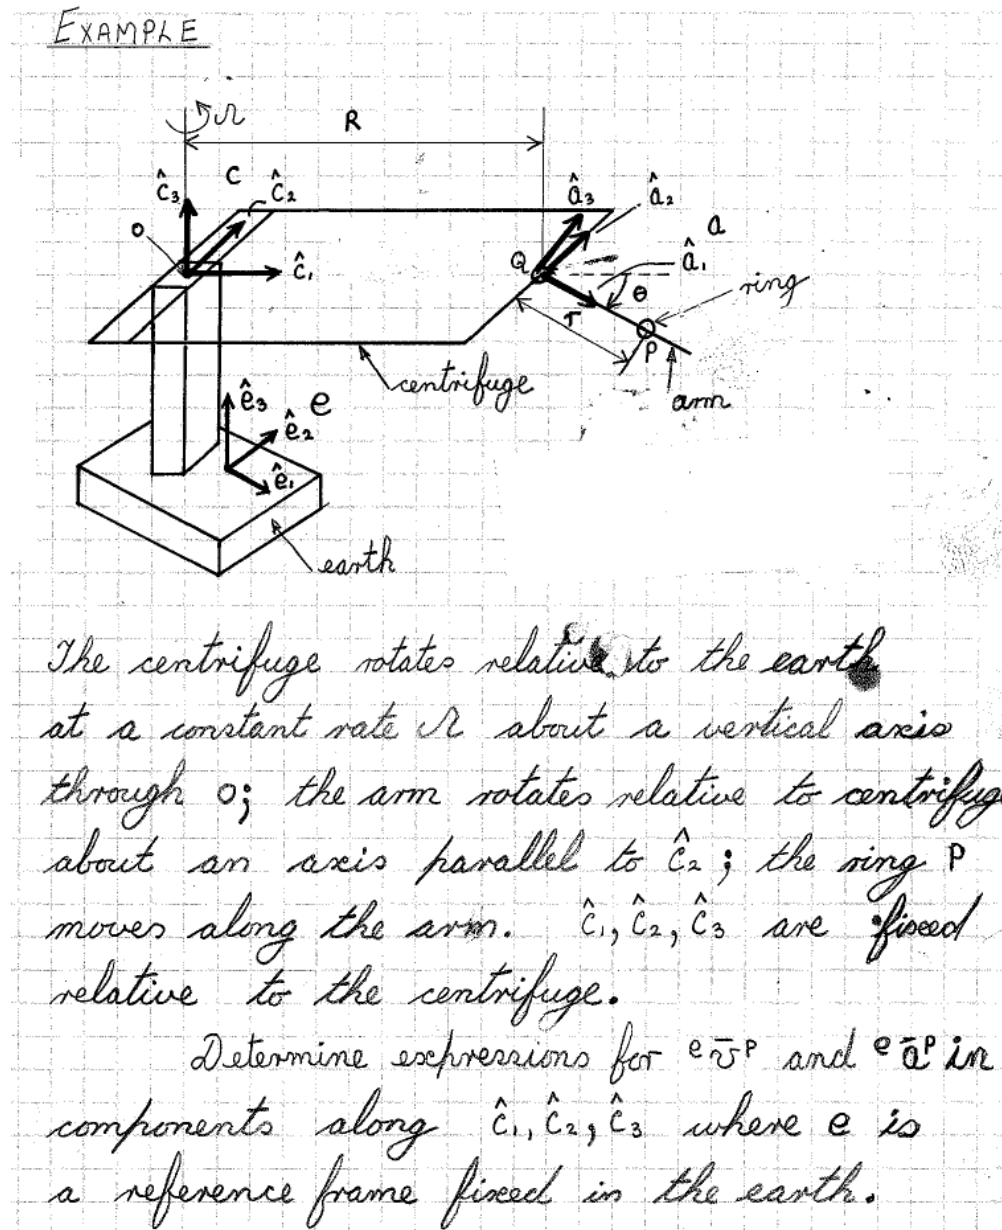 EXAMPLE
Ω
R
ĉ₃
C
ĉ₂
â₃
â₂
a
O
ĉ₁
Q
â₁
θ
ring
r
P
centrifuge
arm
ê₃
e
ê₂
ê₁
earth
The centrifuge rotates relative to the earth
at a constant rate Ω about a vertical axis
through O; the arm rotates relative to centrifuge
about an axis parallel to ĉ₂; the ring P
moves along the arm. ĉ₁, ĉ₂, ĉ₃ are fixed
relative to the centrifuge.
Determine expressions for ᵉv̄ᴾ and ᵉāᴾ in
components along ĉ₁, ĉ₂, ĉ₃ where e is
a reference frame fixed in the earth.